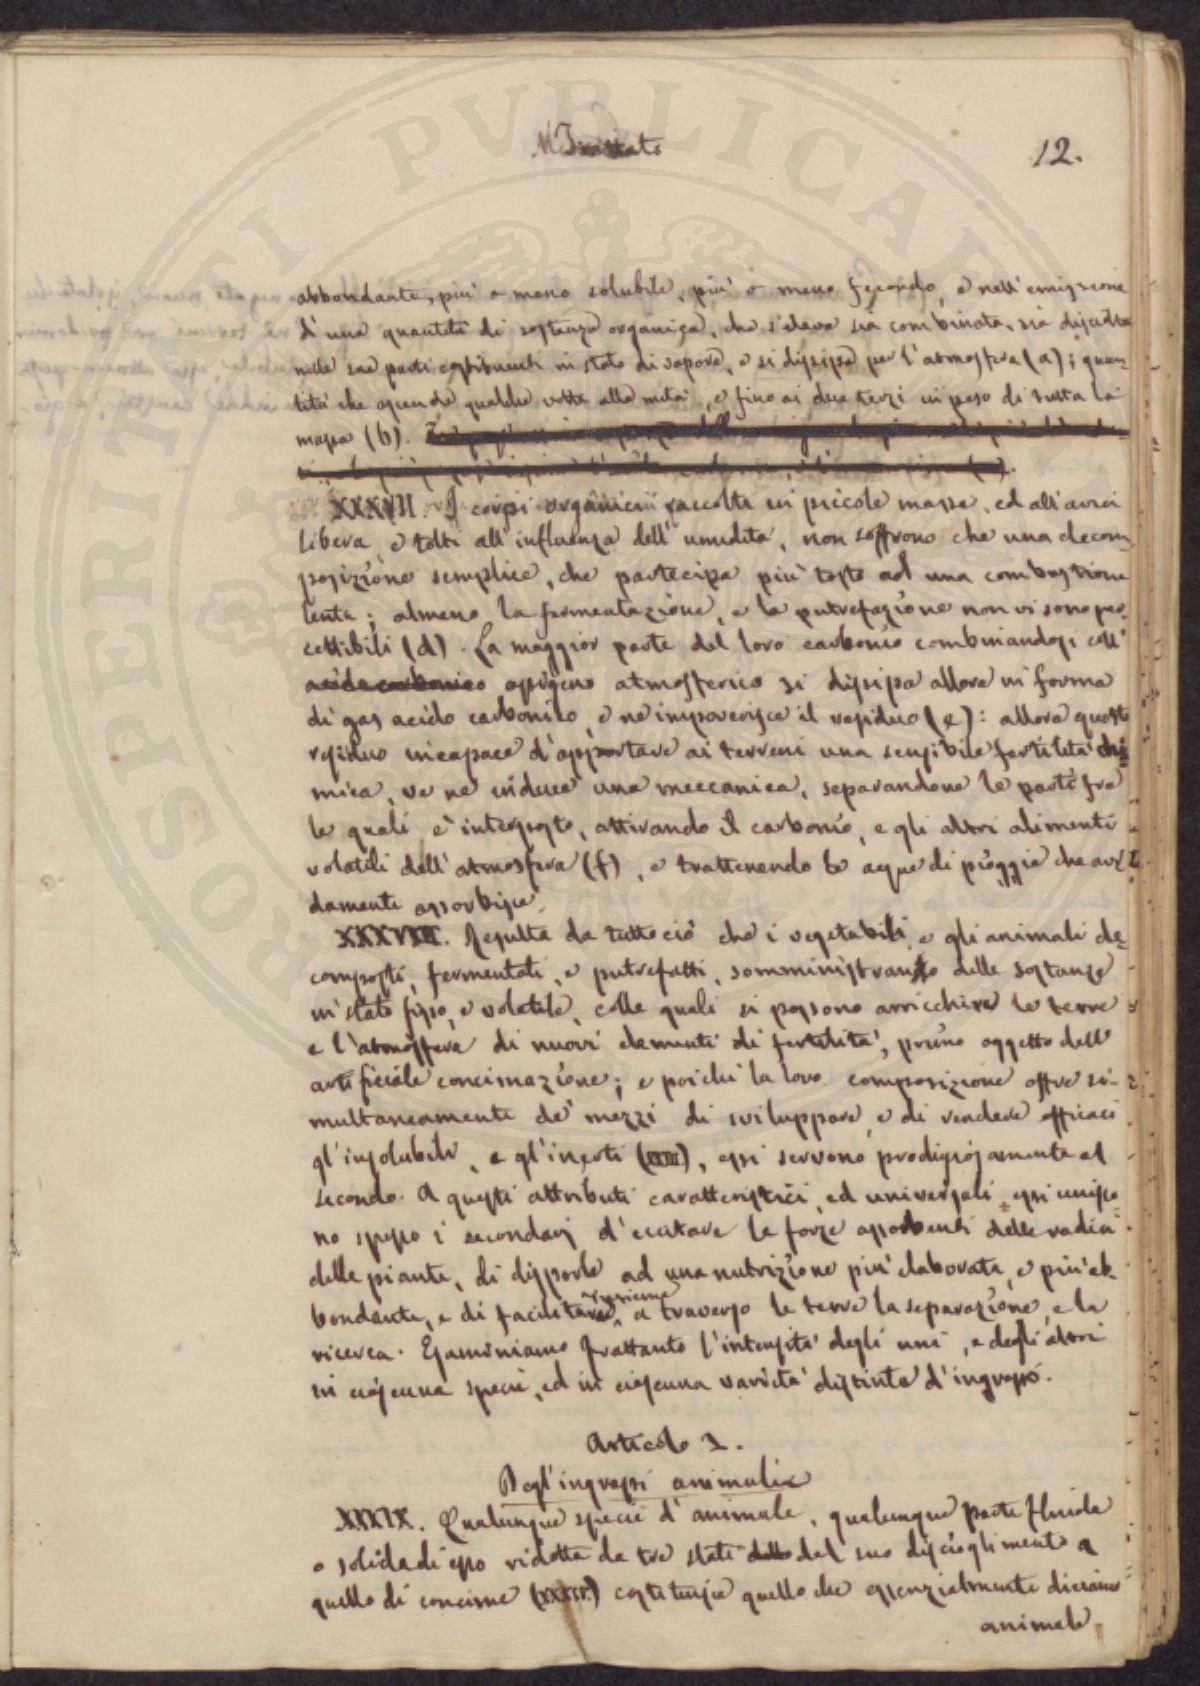 12.
abbondante, più o meno solubile, più o meno fecondo, e nell'emissione
d'una quantità di sostanza organica, che s'eleva sia combinata, sia disciolta
nelle sue parti costituenti in stato di vapore, e si dissipa per l'atmosfera (a); quan-
tità che ascende qualche volta alla metà, e fino ai due terzi in peso di tutta la
massa (b).
XXXVII. I corpi organici raccolti in piccole masse, ed all'aria
libera, e tolti all'influenza dell'umidità, non soffrono che una decom-
posizione semplice, che partecipa più tosto ad una combustione
lenta; almeno la fermentazione, e la putrefazione non vi sono per-
cettibili (d). La maggior parte del loro carbonio combinandosi coll'
acido carbonico ossigeno atmosferico si dissipa allora in forma
di gas acido carbonico, e ne impoverisce il residuo (e): allora questo
residuo incapace d'apportare ai terreni una sensibile fertilità chi-
mica, ve ne induce una meccanica, separandone le parti fra
le quali è interposto, attirando il carbonio, e gli altri alimenti
volatili dell'atmosfera (f), e trattenendo le acque di pioggia che avi-
damente assorbisce.
XXXVIII. Resulta da tutto ciò che i vegetabili, e gli animali de-
composti, fermentati, e putrefatti, somministrano delle sostanze
in stato fisso, e volatile, colle quali si possono arricchire le terre
e l'atmosfera di nuovi elementi di fertilità, primo oggetto dell'
artificiale concimazione; e poichè la loro composizione offre si-
multaneamente de' mezzi di sviluppare, e di rendere efficaci
gl'insolubili, e gl'inerti, essi servono prodigiosamente al
secondo. A questi attributi caratteristici, ed universali, essi unisco-
no spesso i secondarj d'eccitare le forze assorbenti delle radici
delle piante, di disporle ad una nutrizione più elaborata, e più ab-
bondante, e di facilitarne insieme a traverso le terre la separazione, e la
ricerca. Esaminiamo frattanto l'intensità degli uni, e degli altri
in ciascuna specie, ed in ciascuna varietà distinta d'ingrasso.
Articolo 1.
Degl'ingrassi animali
XXXIX. Qualunque specie d'animale, qualunque parte fluida
o solida di esso ridotta da tre stati dal suo discioglimento a
quello di concime costituisce quello che essenzialmente diciamo
animale,